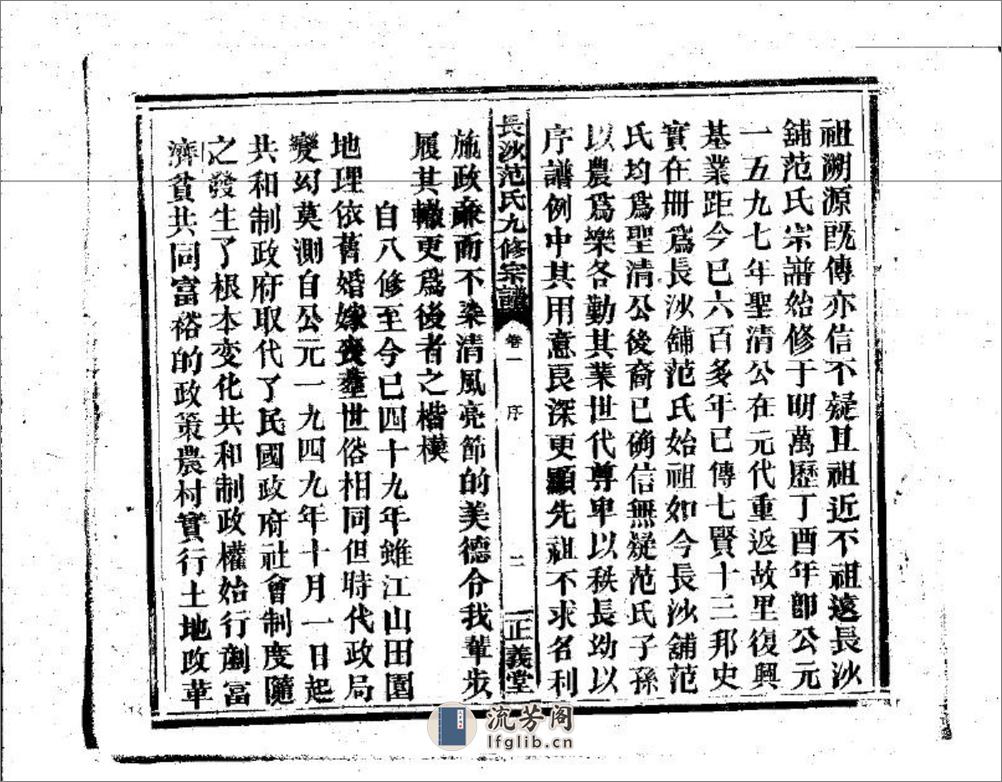 祖溯源既傳亦信不疑且祖近不祖遠長沙
舖范氏宗譜始修于明萬歷丁酉年即公元
一五九七年聖清公在元代重返故里復興
基業距今已六百多年已傳七賢十三邦史
實在冊爲長沙舖范氏始祖如今長沙舖范
氏均爲聖清公後裔已确信無疑范氏子孫
以農爲樂各勤其業世代尊卑以秩長幼以
序譜例中其用意良深更顯先祖不求名利
長沙范氏九修宗譜 卷一 序 二 正義堂
施政廉而不染清風亮節的美德令我輩步
履其轍更爲後者之楷模
自八修至今已四十九年雖江山田園
地理依舊婚嫁喪葬世俗相同但時代政局
變幻莫測自公元一九四九年十月一日起
共和制政府取代了民國政府社會制度隨
之發生了根本变化共和制政權始行劑富
濟貧共同富裕的政策農村實行土地改革
流芳阁
lfglib.cn